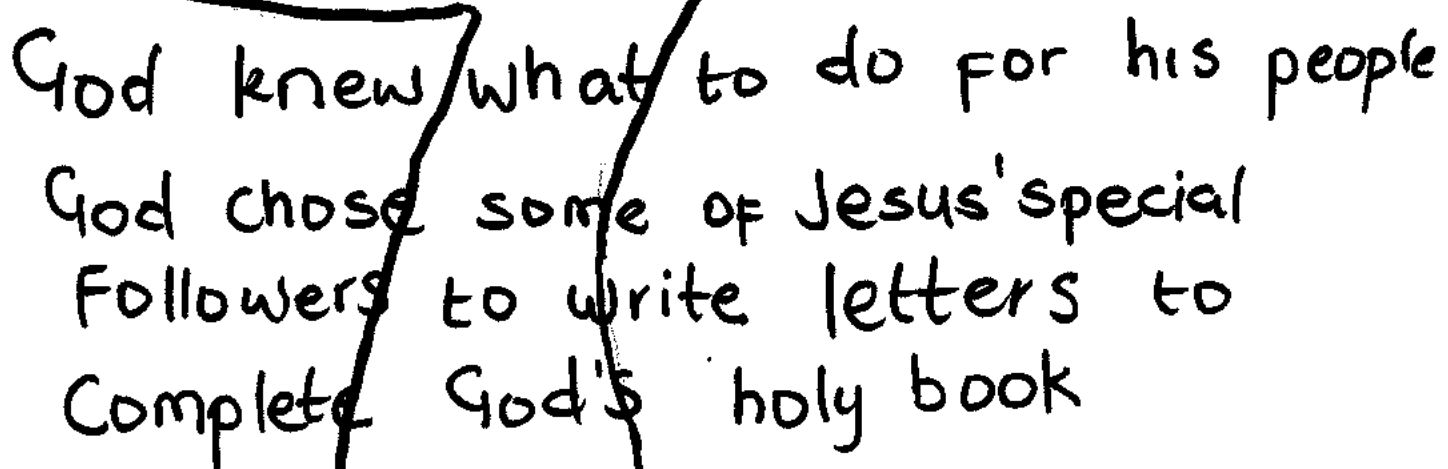 God knew what to do for his people
God chose some of Jesus' special
Followers to write letters to
Complete God's holy book